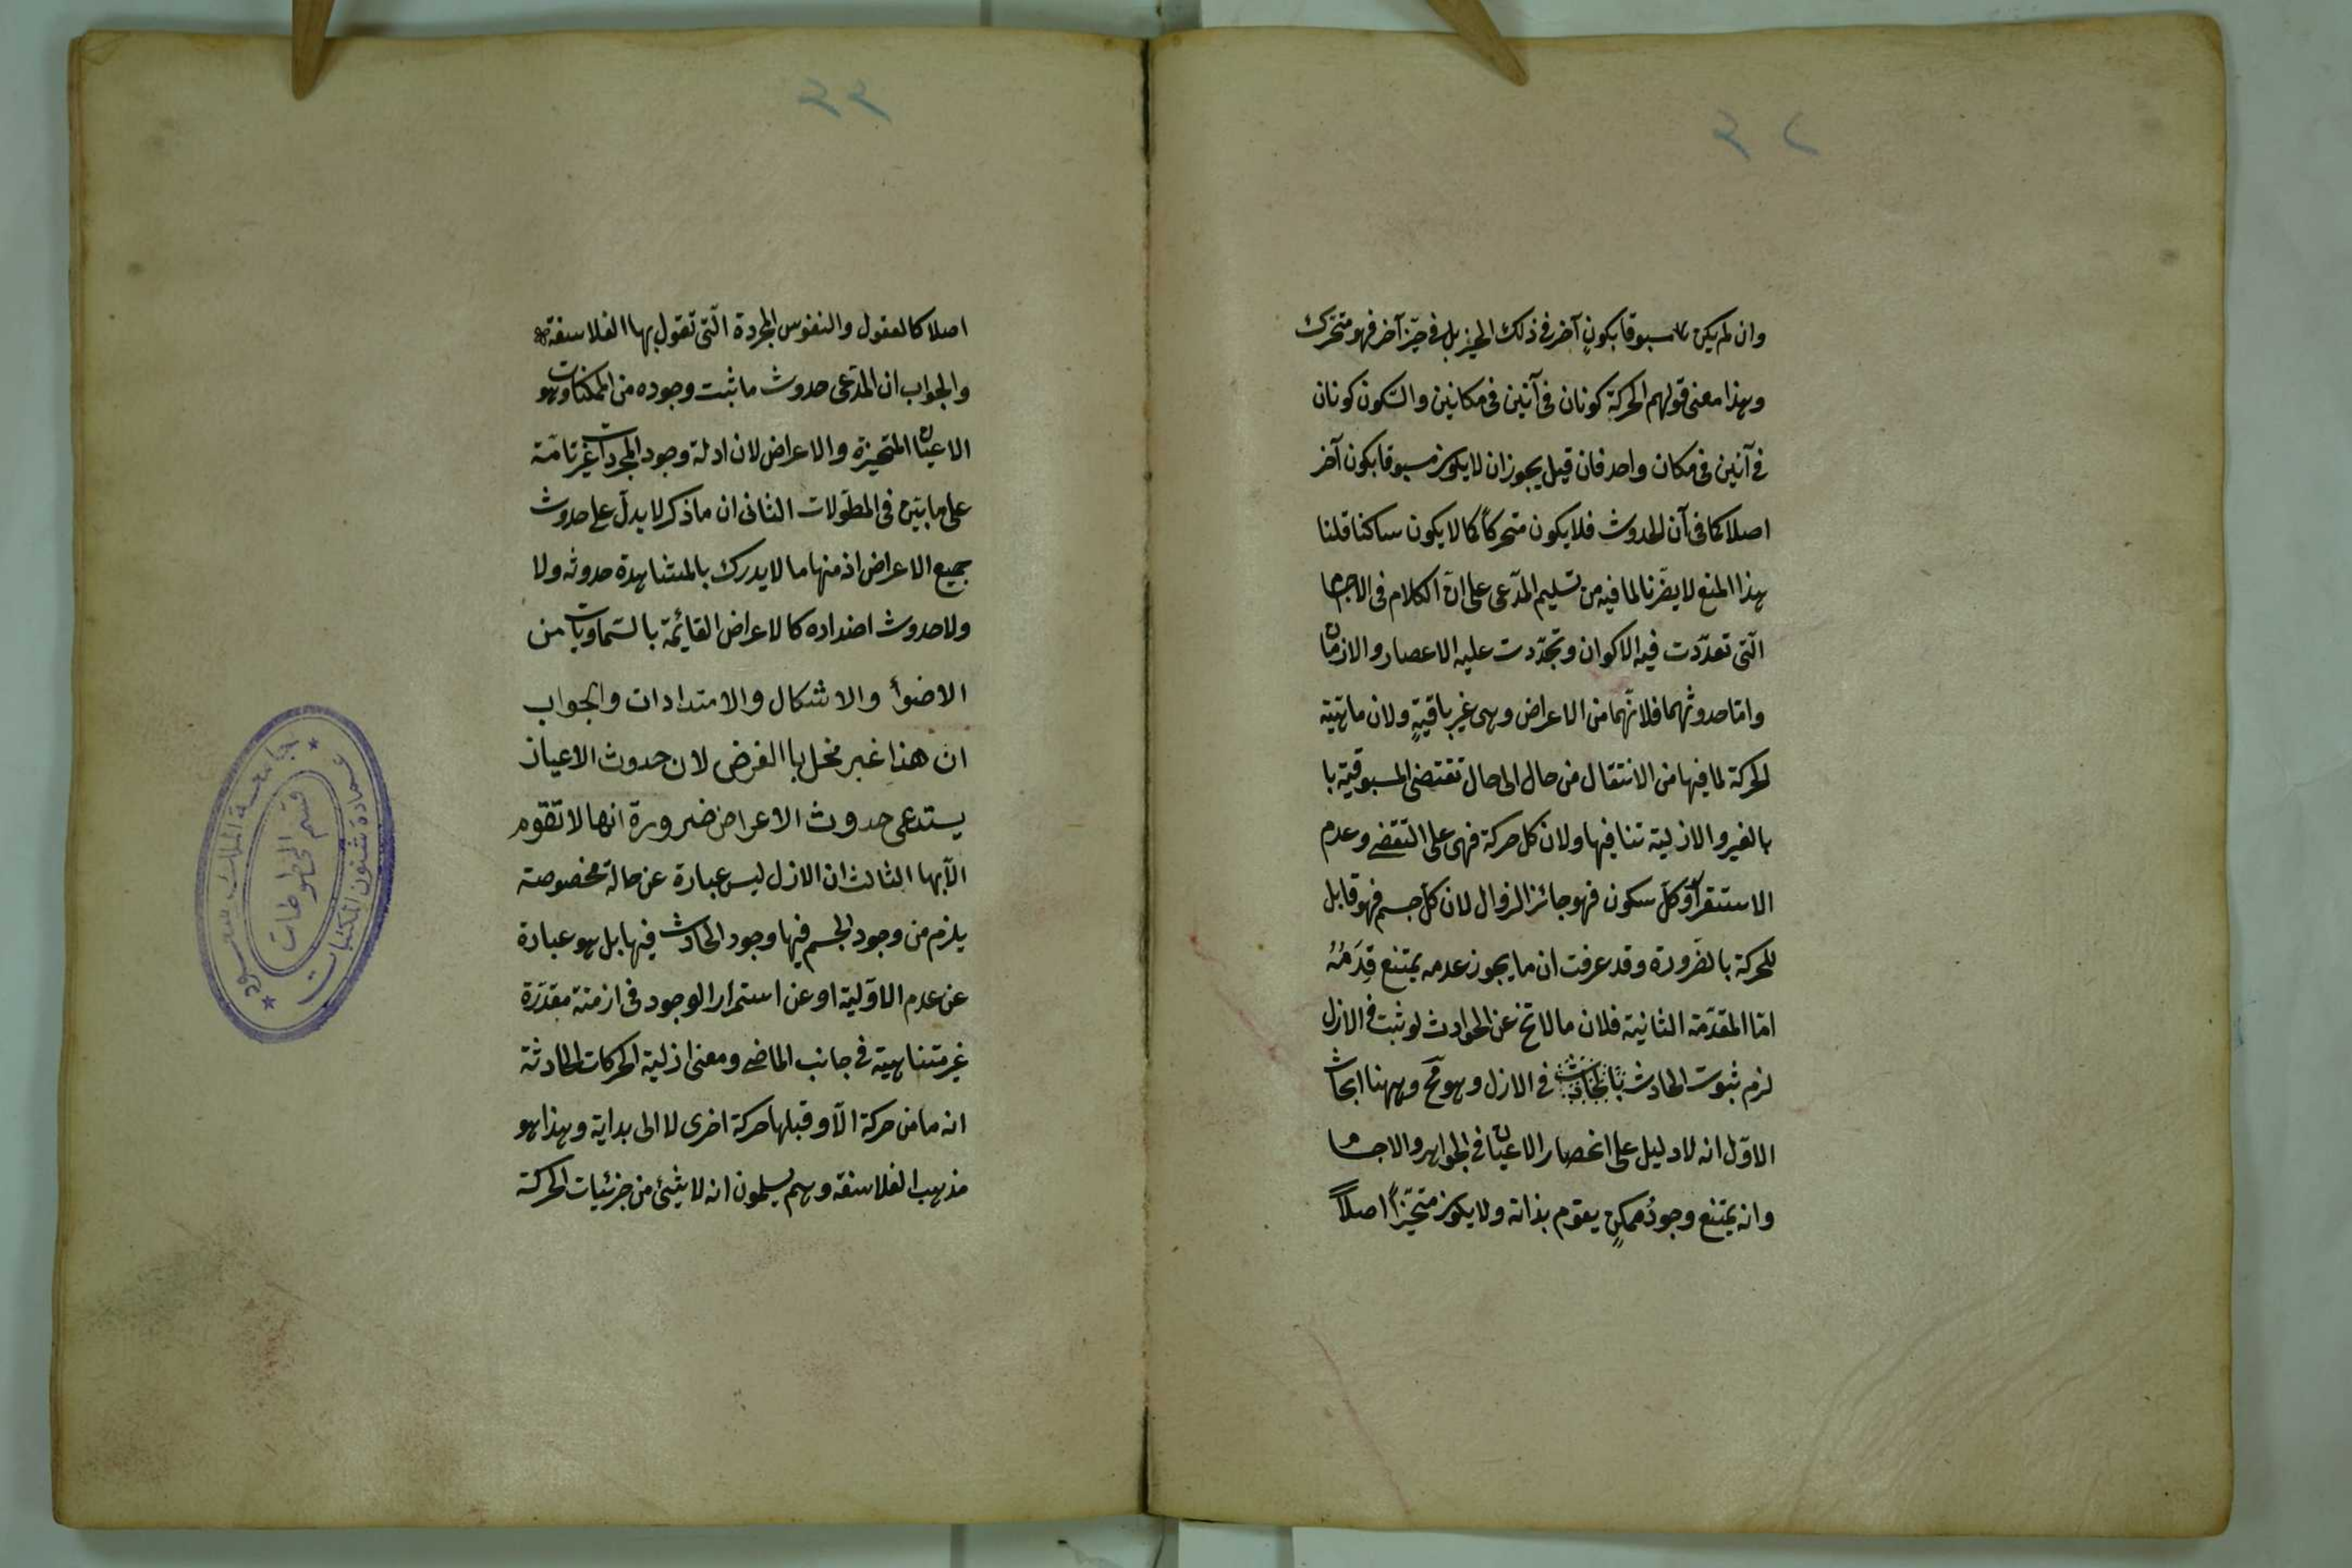 ٣٢
وان لم يكن مسبوقا بكونٍ آخر فى ذلك الحيز بل فى حيّز آخر فهو متحرّك
وهذا معنى قولهم الحركة كونان فى آنين فى مكانين والسّكون كونان
فى آنين فى مكان واحد فان قيل يجوز ان لا يكون مسبوقا بكون آخر
اصلا كما فى آن الحدوث فلا يكون متحركاً كما لا يكون ساكنا قلنا
هذا المنع لا يضّرنا لما فيه من تسليم المدّعى على انّ الكلام فى الاجسام
الّتى تعدّدت فيه الاكوان وتجدّدت عليه الاعصار والازمان
وامّا حدوثهما فلانّهما من الاعراض وهى غير باقيةٍ ولان ماهيّة
الحركة لما فيها من الانتقال من حال الى حال تقتضى المسبوقية با
بالغير والازلية تنافيها ولان كل حركة فهى على التقضى وعدم
الاستقرآر وكلّ سكون فهو جائز الزوال لان كلّ جسم فهو قابل
للحركة بالضّرورة وقد عرفت ان ما يجوز عدمه يمتنع قِدَمُهُ
امّا المقدّمة الثانية فلان ما لا تخ عن الحوادث لو ثبت فى الازل
لزم ثبوت الحادث بالحادث فى الازل وهو مح وههنا ابحاث
الاوّل انه لا دليل على انحصار الاعيان فى الجواهر والاجسام
وانه يمتنع وجودُ ممكنٍ يقوم بذاته ولا يكون متحيّزاً اصلاً
٣٣
اصلا كالعقول والنفوس المجردة الّتى تقول بها الفلاسفة
والجواب ان المدّعى حدوث ما ثبت وجوده من الممكنات وهو
الاعيان المتحيزة والاعراض لان ادلة وجود المجردات غير تامّة
على ما بيّن فى المطوّلات الثانى ان ما ذكر لا يدلّ على حدوث
جميع الاعراض اذ منها ما لا يدرك بالمشاهدة حدوثه ولا
ولا حدوث اضداده كالاعراض القائمة بالسّماويات من
الاضوأ والاشكال والامتدادات والجواب
ان هذا غير مخل با الغرض لان حدوث الاعيان
يستدعى حدوث الاعراض ضرورة انها لا تقوم
الّا بها الثالث ان الازل ليس عبارة عن حالة مخصوصة
يلزم من وجود الجسم فيها وجود الحادث فيها بل هو عبارة
عن عدم الاوّلية او عن استمرار الوجود فى ازمنة مقدّرة
غير متناهية فى جانب الماضى ومعنى ازلية الحركات الحادثة
انه ما من حركة الّا وقبلها حركة اخرى لا الى بداية وهذا هو
مذهب الفلاسفه وهم يسلمون انه لا شيئ من جزئيات الحركة
جامعة الملك سعود
عمادة شئون المكتبات
قسم المخطوطات